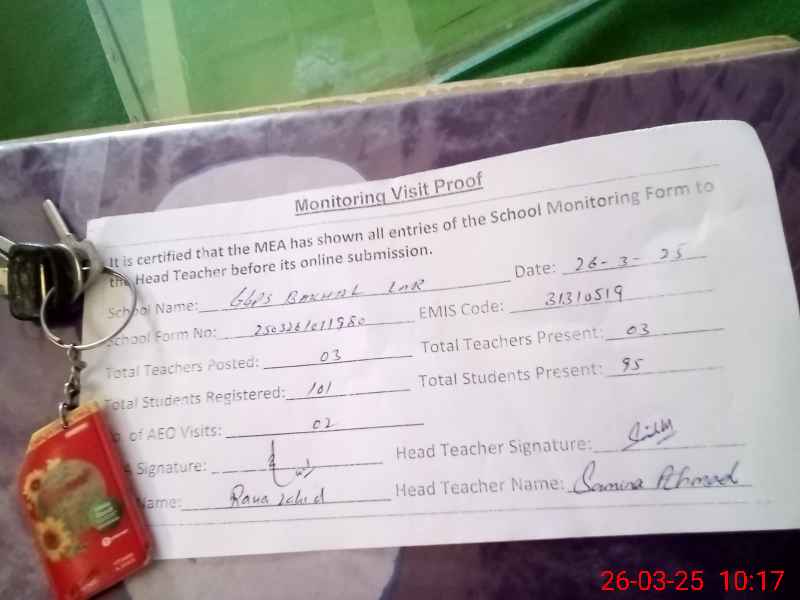 Monitoring Visit Proof
It is certified that the MEA has shown all entries of the School Monitoring Form to
the Head Teacher before its online submission.
School Name: GGPS Date: 26-3-25
School Form No: EMIS Code: 31310519
Total Teachers Posted: 03 Total Teachers Present: 03
Total Students Registered: 101 Total Students Present: 95
of AEO Visits: 02
Signature: Head Teacher Signature:
Name: Rana Zahid Head Teacher Name: Samina Ahmad
26-03-25 10:17